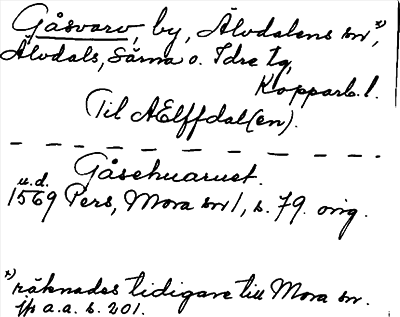 Gåsvarv, by, Älvdalens sn x),
Älvdals, Särna o. Idre tg,
Kopparb. l.
Til AElffdal(en).
Gåsehuaruet.
u.d.
1569 Pers, Mora sn 1, s. 79. orig.
x) räknades tidigare till Mora sn.
jfr a.a. s. 201.